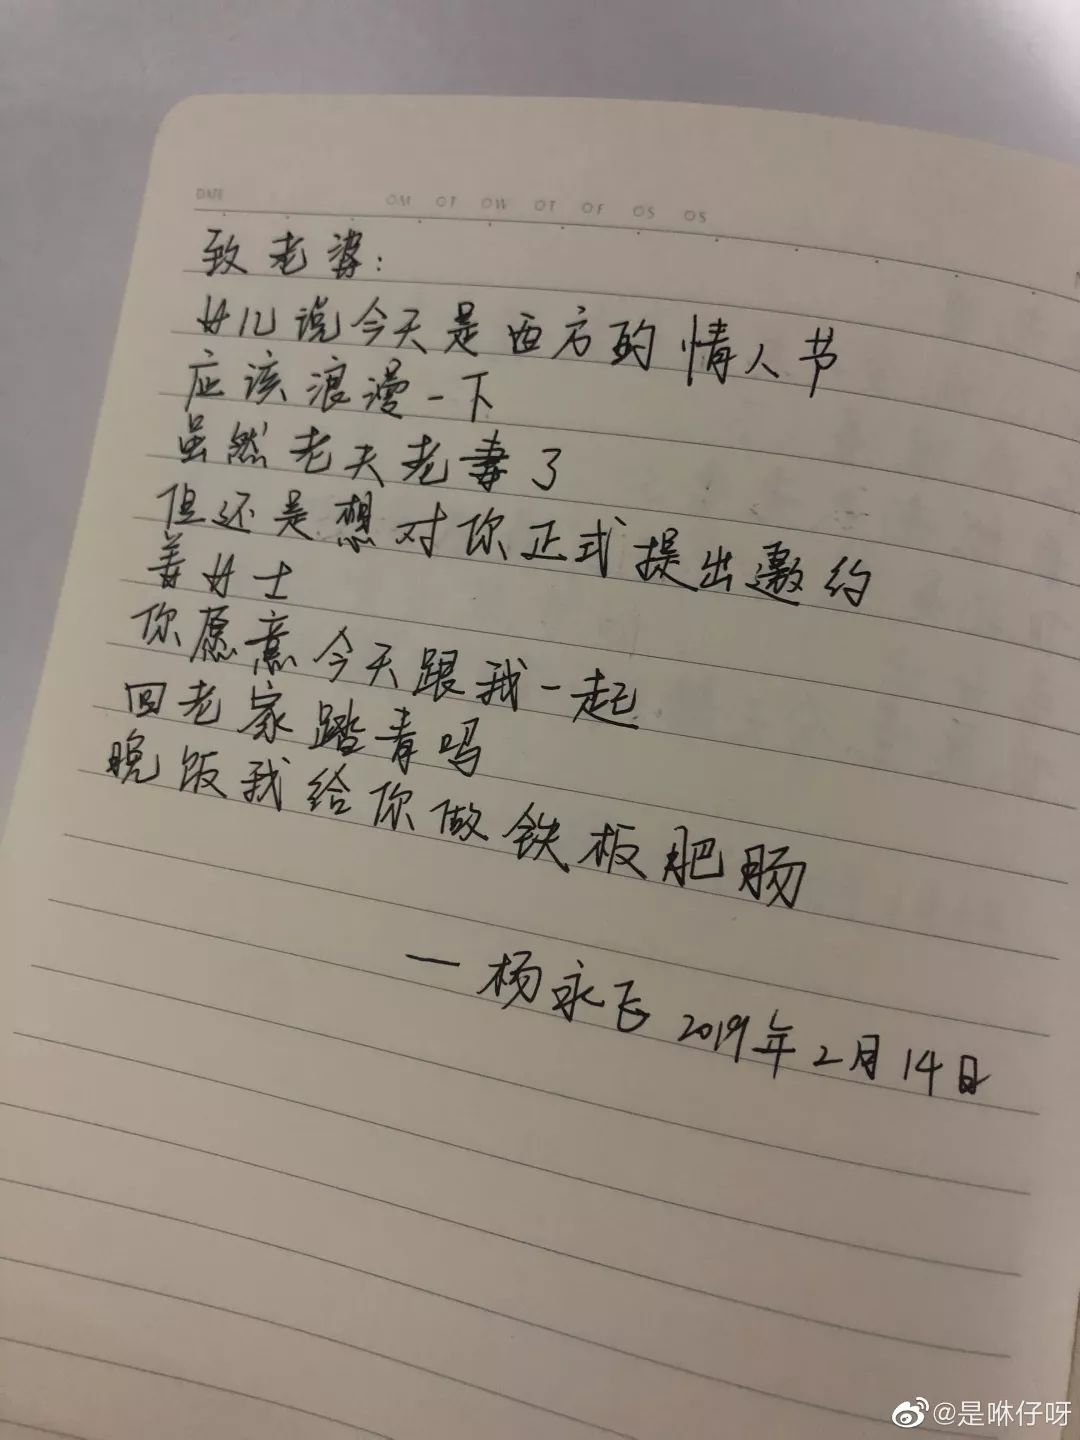 DATE
OM OT OW OT OF OS OS
致老婆:
女儿说今天是西方的情人节
应该浪漫一下
虽然老夫老妻了
但还是想对你正式提出邀约
姜女士
你愿意今天跟我一起
回老家踏青吗
晚饭我给你做铁板肥肠
—杨永飞 2019年2月14日
@是咻仔呀